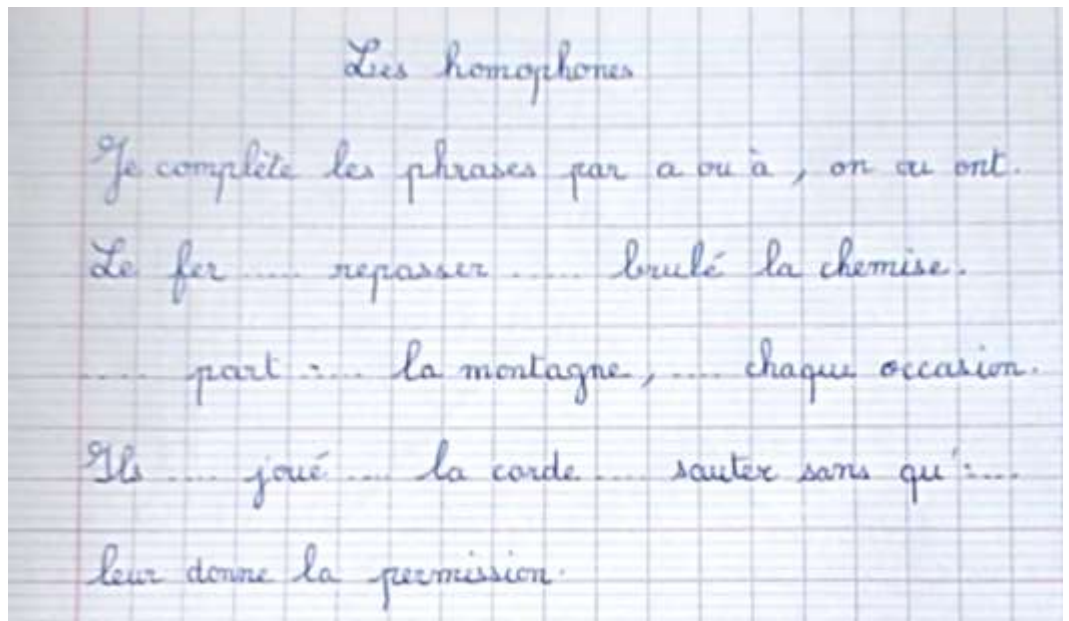 Les homophones
Je complète les phrases par a ou à, on ou ont.
Le fer .... repasser ..... brulé la chemise.
.... part ..... la montagne, .... chaque occasion.
Ils .... joué .... la corde .... sauter sans qu'.....
leur donne la permission.